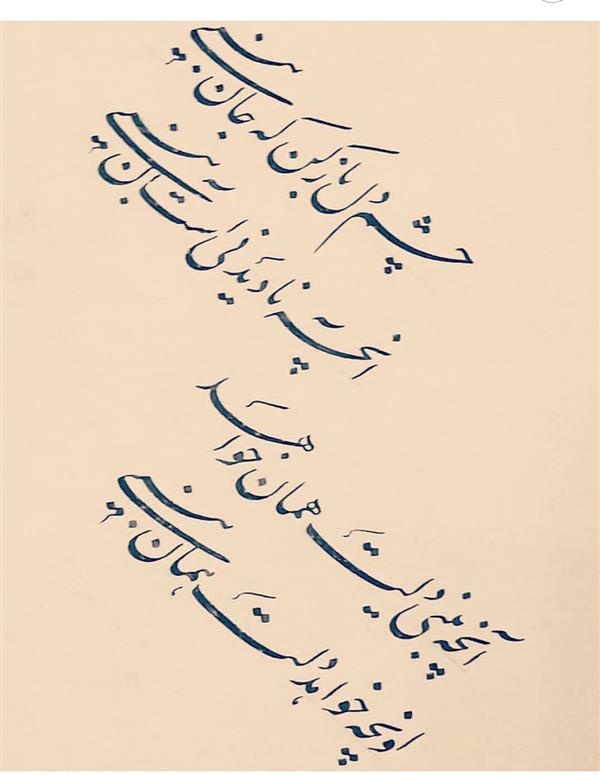 چشم دل باز کن که جان بینی
آنچه نادیدنی است آن بینی
آنچه بینی دلت همان خواهد
وانچه خواهد دلت همان بینی